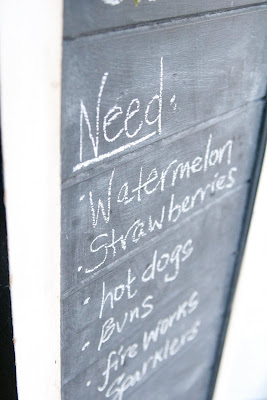 Need:
· Watermelon
· Strawberries
· hot dogs
· Buns
· fire works
Sparklers